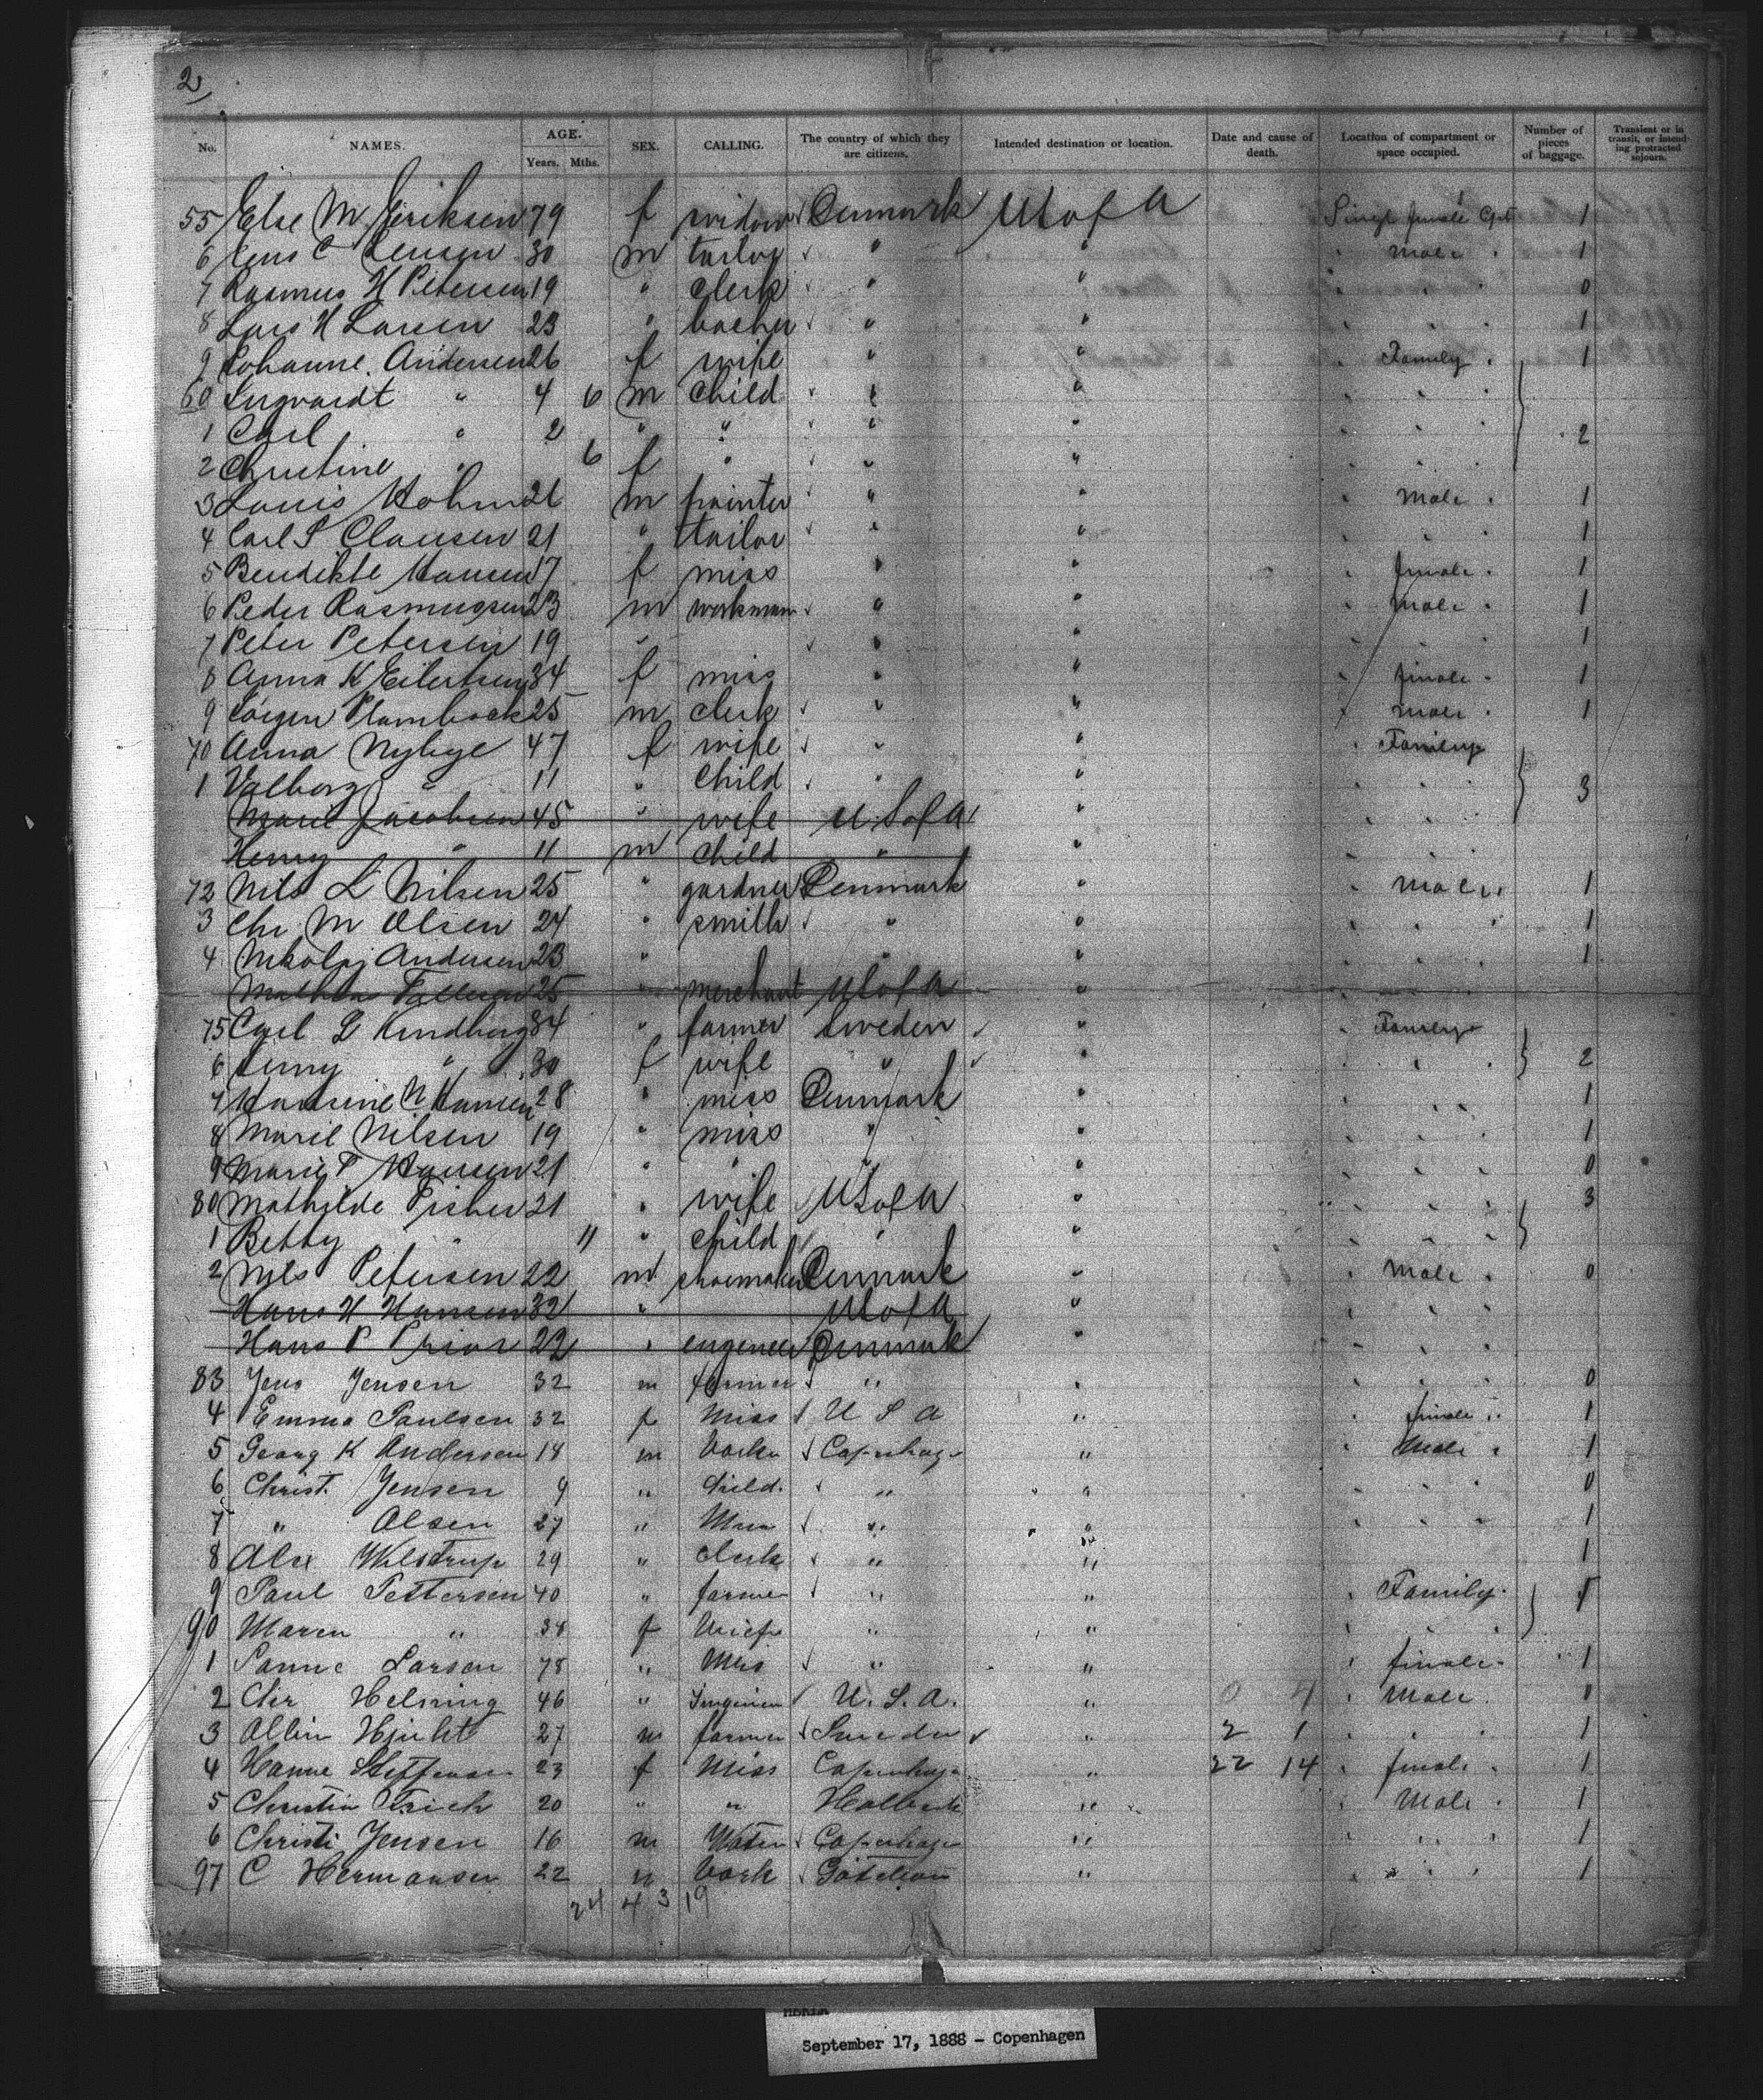 2
No. NAMES. AGE. Years. Mths. SEX. CALLING. The country of which they are citizens. Intended destination or location. Date and cause of death. Location of compartment or space occupied. Number of pieces of baggage. Transient or in transit, or intending protracted sojourn.
55 Else M Eriksen 79 f widow Denmark U S of A Single female Cpt 1
6 Jens C Jensen 30 m tailor " " " male " 1
7 Rasmus H Petersen 19 " clerk " " " " " 0
8 Lars H Larsen 23 " " " " " " 1
9 Johanne Andersen 26 f wife " " Family " 1
60 Ingvardt " 4 6 m child " " " " "
1 Carl " 2 " " " " " " " 2
2 Christine " 6 f " " " " " "
3 Louis Hohm 21 m painter " " " male " 1
4 Carl S Clausen 21 " tailor " " " " " 1
5 Bendikte Hansen 17 f miss " " " female " 1
6 Peder Rasmussen 23 m workman " " " male " 1
7 Peter Petersen 19 " " " " " 1
8 Anna K Eilertsen 34 f miss " " " female " 1
9 Jörgen Plambeck 25 m clerk " " " male " 1
70 Anna Nybye 47 f wife " " " Family
1 Valborg " 11 " child " " " " " 3
Marie Jacobsen 45 " wife U S of A " " "
Henry " 11 m child " " " "
72 Nils L Nilsen 25 " gardner Denmark " " male " 1
3 Chr M Olsen 24 " smith " " " " " 1
4 Nikolaj Andersen 23 " " " " " " 1
25 " merchant U S of A " " " "
75 Carl L Kindberg 34 " farmer Sweden " " Family
6 Jenny " 30 f wife " " " " " 2
7 Hansine N Hansen 28 " miss Denmark " " " " 1
8 Marie Nilsen 19 " miss " " " " " 1
9 Marie P Hansen 21 " " " " " " " 0
80 Mathilde Fisher 21 " wife U S of A " " " " 3
1 Betty " 11 " child " " " " "
2 Nils Petersen 22 m shoemaker Denmark " " male " 0
Hans H Hansen 32 " U S of A " " "
Hans P Prior 22 " engeneer Denmark " " " "
83 Jens Jensen 32 m farmer " " " " " 0
4 Emma Paulsen 32 f Miss U S A " " female " 1
5 Georg K Andersen 18 m Copenhage " " Male " 1
6 Christ. Jensen 9 " Child. " " " " " 0
7 " Olsen 27 " " " " " " 1
8 Alex Wilstrup 29 " Clerk " " 1
9 Paul Pettersen 40 " farmer " " " Family
90 Maren " 34 f Wife " " " " "
1 Larsen 78 " Mrs " " " female " 1
2 Chr Helsning 46 " U. S. A. " 0 4 " Male
3 27 m farmer Sweden " 2 1 " " " 1
4 Hanne Steffensen 23 f Miss Copenhage " 22 14 " female " 1
5 Christin Frich 20 " " " " Male " 1
6 Christi Jensen 16 m Copenhage " " " " 1
97 C Hermansen 22 " " " " " 1
24 4 3 19
September 17, 1888 - Copenhagen